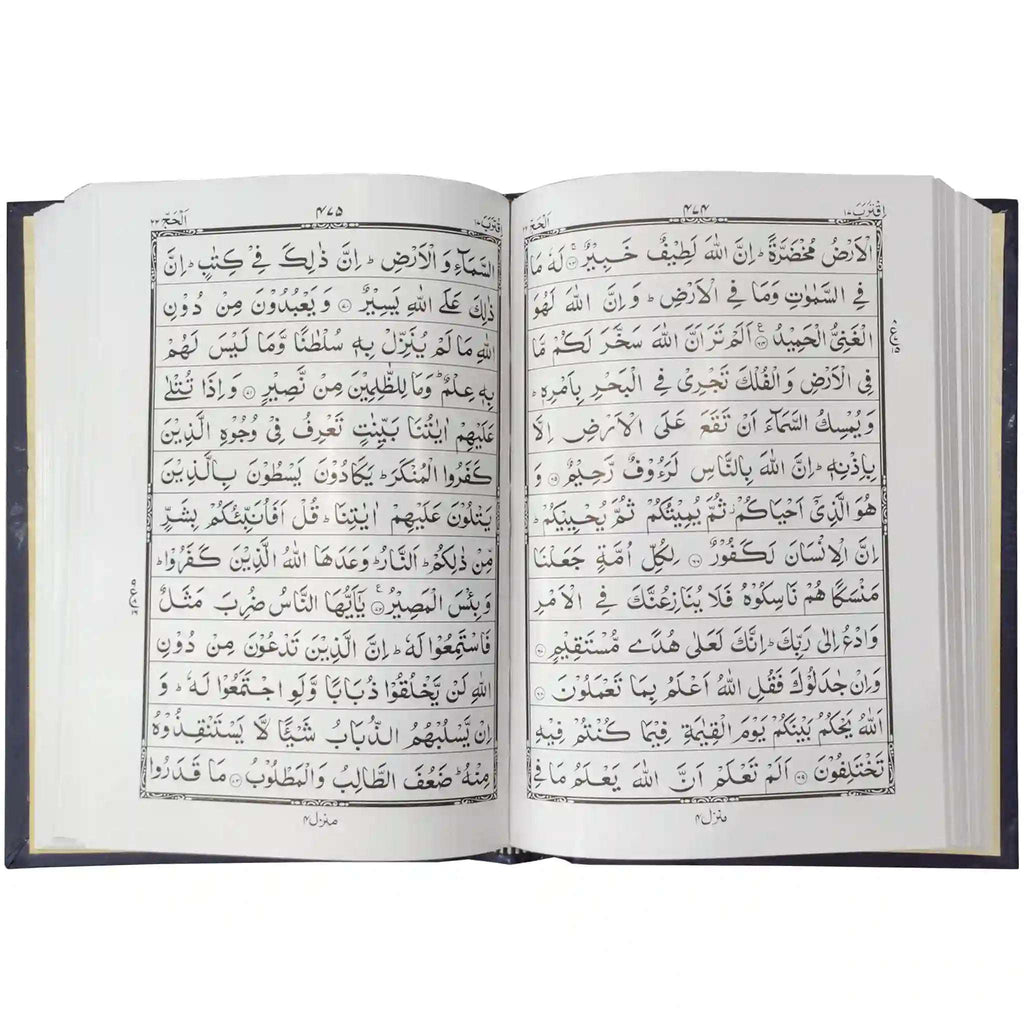 اِقْتَرَبَ ۱۷
۴۷۴
اَلْحَجّ ۲۲
الْاَرْضُ مُخْضَرَّةً ؕ اِنَّ اللّٰهَ لَطِيْفٌ خَبِيْرٌ ۚ﴿۶۳﴾ لَهٗ مَا
فِي السَّمٰوٰتِ وَمَا فِي الْاَرْضِ ؕ وَ اِنَّ اللّٰهَ لَهُوَ
الْغَنِيُّ الْحَمِيْدُ ﴿۶۴﴾ ع اَلَمْ تَرَ اَنَّ اللّٰهَ سَخَّرَ لَكُمْ مَّا
فِي الْاَرْضِ وَ الْفُلْكَ تَجْرِيْ فِي الْبَحْرِ بِاَمْرِهٖ ؕ
وَ يُمْسِكُ السَّمَآءَ اَنْ تَقَعَ عَلَى الْاَرْضِ اِلَّا
بِاِذْنِهٖ ؕ اِنَّ اللّٰهَ بِالنَّاسِ لَرَءُوْفٌ رَّحِيْمٌ ﴿۶۵﴾ وَ
هُوَ الَّذِيْۤ اَحْيَاكُمْ ؗ ثُمَّ يُمِيْتُكُمْ ثُمَّ يُحْيِيْكُمْ ؕ
اِنَّ الْاِنْسَانَ لَكَفُوْرٌ ﴿۶۶﴾ لِكُلِّ اُمَّةٍ جَعَلْنَا
مَنْسَكًا هُمْ نَاسِكُوْهُ فَلَا يُنَازِعُنَّكَ فِي الْاَمْرِ
وَ ادْعُ اِلٰى رَبِّكَ ؕ اِنَّكَ لَعَلٰى هُدًى مُّسْتَقِيْمٍ ﴿۶۷﴾
وَ اِنْ جٰدَلُوْكَ فَقُلِ اللّٰهُ اَعْلَمُ بِمَا تَعْمَلُوْنَ ﴿۶۸﴾
اَللّٰهُ يَحْكُمُ بَيْنَكُمْ يَوْمَ الْقِيٰمَةِ فِيْمَا كُنْتُمْ فِيْهِ
تَخْتَلِفُوْنَ ﴿۶۹﴾ اَلَمْ تَعْلَمْ اَنَّ اللّٰهَ يَعْلَمُ مَا فِي
منزل ۴
اِقْتَرَبَ ۱۷
۴۷۵
اَلْحَجّ ۲۲
السَّمَآءِ وَ الْاَرْضِ ؕ اِنَّ ذٰلِكَ فِيْ كِتٰبٍ ؕ اِنَّ
ذٰلِكَ عَلَى اللّٰهِ يَسِيْرٌ ﴿۷۰﴾ وَ يَعْبُدُوْنَ مِنْ دُوْنِ
اللّٰهِ مَا لَمْ يُنَزِّلْ بِهٖ سُلْطٰنًا وَّ مَا لَيْسَ لَهُمْ
بِهٖ عِلْمٌ ؕ وَ مَا لِلظّٰلِمِيْنَ مِنْ نَّصِيْرٍ ﴿۷۱﴾ وَ اِذَا تُتْلٰى
عَلَيْهِمْ اٰيٰتُنَا بَيِّنٰتٍ تَعْرِفُ فِيْ وُجُوْهِ الَّذِيْنَ
كَفَرُوا الْمُنْكَرَ ؕ يَكَادُوْنَ يَسْطُوْنَ بِالَّذِيْنَ
يَتْلُوْنَ عَلَيْهِمْ اٰيٰتِنَا ؕ قُلْ اَفَاُنَبِّئُكُمْ بِشَرٍّ
مِّنْ ذٰلِكُمْ ؕ اَلنَّارُ ؕ وَعَدَهَا اللّٰهُ الَّذِيْنَ كَفَرُوْا ؕ
وَ بِئْسَ الْمَصِيْرُ ﴿۷۲﴾ ع يٰۤاَيُّهَا النَّاسُ ضُرِبَ مَثَلٌ
فَاسْتَمِعُوْا لَهٗ ؕ اِنَّ الَّذِيْنَ تَدْعُوْنَ مِنْ دُوْنِ
اللّٰهِ لَنْ يَّخْلُقُوْا ذُبَابًا وَّ لَوِ اجْتَمَعُوْا لَهٗ ؕ وَ
اِنْ يَّسْلُبْهُمُ الذُّبَابُ شَيْـًٔا لَّا يَسْتَنْقِذُوْهُ
مِنْهُ ؕ ضَعُفَ الطَّالِبُ وَ الْمَطْلُوْبُ ﴿۷۳﴾ مَا قَدَرُوا
منزل ۴